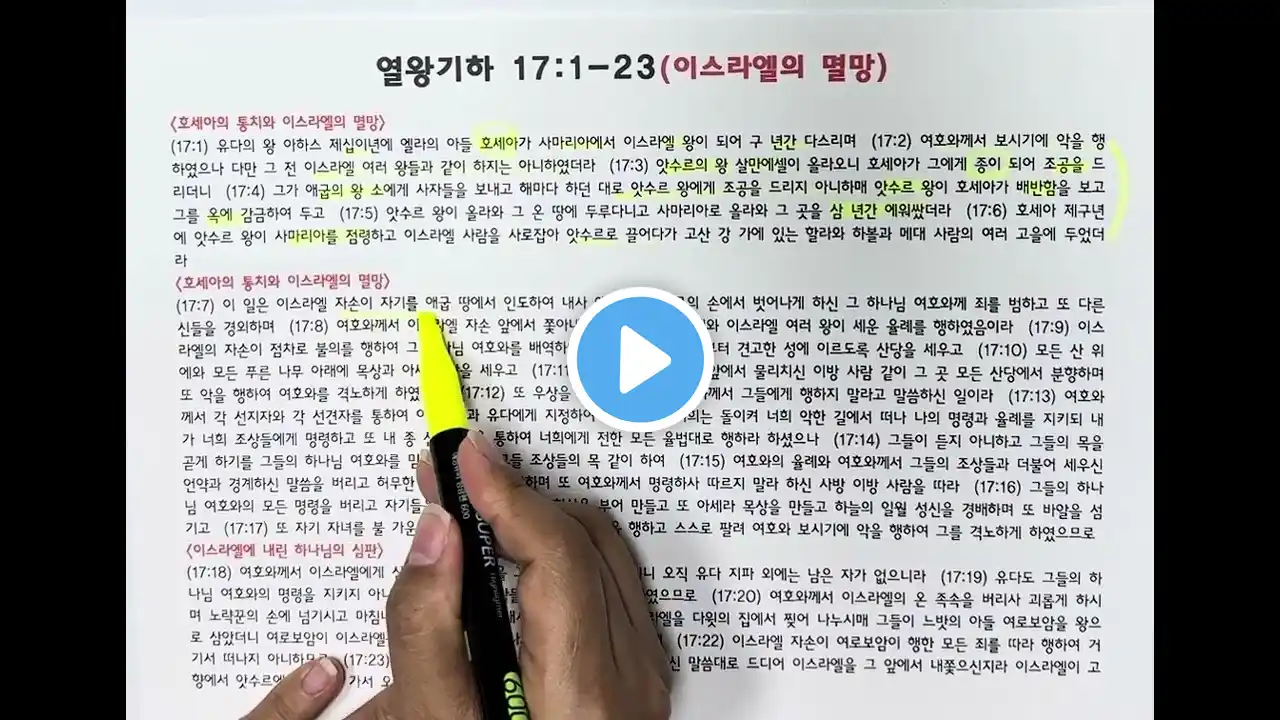 열왕기하 17:1-23(이스라엘의 멸망)
<호세아의 통치와 이스라엘의 멸망>
(17:1) 유다의 왕 아하스 제십이년에 엘라의 아들 호세아가 사마리아에서 이스라엘 왕이 되어 구 년간 다스리며 (17:2) 여호와께서 보시기에 악을 행
하였으나 다만 그 전 이스라엘 여러 왕들과 같이 하지는 아니하였더라 (17:3) 앗수르의 왕 살만에셀이 올라오니 호세아가 그에게 종이 되어 조공을 드
리더니 (17:4) 그가 애굽의 왕 소에게 사자들을 보내고 해마다 하던 대로 앗수르 왕에게 조공을 드리지 아니하매 앗수르 왕이 호세아가 배반함을 보고
그를 옥에 감금하여 두고 (17:5) 앗수르 왕이 올라와 그 온 땅에 두루다니고 사마리아로 올라와 그 곳을 삼 년간 에워쌌더라 (17:6) 호세아 제구년
에 앗수르 왕이 사마리아를 점령하고 이스라엘 사람을 사로잡아 앗수르로 끌어다가 고산 강 가에 있는 할라와 하볼과 메대 사람의 여러 고을에 두었더
라
<호세아의 통치와 이스라엘의 멸망>
(17:7) 이 일은 이스라엘 자손이 자기를 애굽 땅에서 인도하여 내사 손에서 벗어나게 하신 그 하나님 여호와께 죄를 범하고 또 다른
신들을 경외하며 (17:8) 여호와께서 자손 앞에서 이스라엘 여러 왕이 세운 율례를 행하였음이라 (17:9) 이스
라엘의 자손이 점차로 불의를 행하여 여호와를 견고한 성에 이르도록 산당을 세우고 (17:10) 모든 산 위
에와 모든 푸른 나무 아래에 목상과 세우고 앞에서 물리치신 이방 사람 같이 그 곳 모든 산당에서 분향하며
또 악을 행하여 여호와를 격노하게 (17:12) 또 우상을 그들에게 행하지 말라고 말씀하신 일이라 (17:13) 여호와
께서 각 선지자와 각 선견자를 통하여 유다에게 지정하여 돌이켜 너희 악한 길에서 떠나 나의 명령과 율례를 지키되 내
가 너희 조상들에게 명령하고 또 내 종 통하여 너희에게 전한 모든 율법대로 행하라 하셨으나 (17:14) 그들이 듣지 아니하고 그들의 목을
곧게 하기를 그들의 하나님 여호와를 조상들의 목 같이 하여 (17:15) 여호와의 율례와 여호와께서 그들의 조상들과 더불어 세우신
언약과 경계하신 말씀을 버리고 또 여호와께서 명령하사 따르지 말라 하신 사방 이방 사람을 따라 (17:16) 그들의 하나
님 여호와의 모든 명령을 버리고 부어 만들고 또 아세라 목상을 만들고 하늘의 일월 성신을 경배하며 또 바알을 섬
기고 (17:17) 또 자기 자녀를 불 행하고 스스로 팔려 여호와 보시기에 악을 행하여 그를 격노하게 하였으므로
<이스라엘에 내린 하나님의 심판>
(17:18) 여호와께서 이스라엘에게 오직 유다 지파 외에는 남은 자가 없으니라 (17:19) 유다도 그들의 하
나님 여호와의 명령을 지키지 (17:20) 여호와께서 이스라엘의 온 족속을 버리사 괴롭게 하시
며 노략꾼의 손에 넘기시고 다윗의 집에서 찢어 나누시매 그들이 느밧의 아들 여로보암을 왕으
로 삼았더니 여로보암이 (17:22) 이스라엘 자손이 여로보암이 행한 모든 죄를 따라 행하여 거
기서 떠나지 (17:23) 말씀대로 드디어 이스라엘을 그 앞에서 내쫓으신지라 이스라엘이 고
향에서
SUPER
600